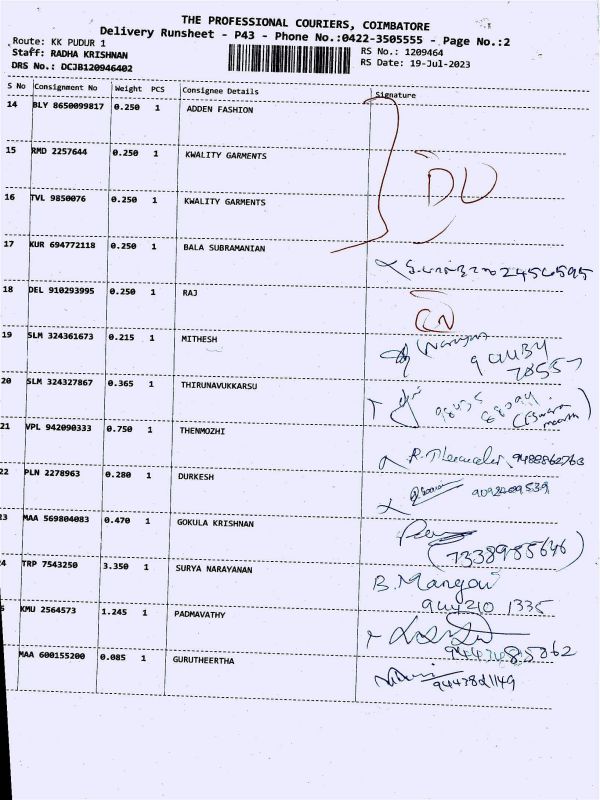 THE PROFESSIONAL COURIERS, COIMBATORE
Delivery Runsheet - P43 - Phone No.:0422-3505555 - Page No.:2
Route: KK PUDUR 1
RS No.: 1209464
Staff: RADHA KRISHNAN
RS Date: 19-Jul-2023
DRS No.: DCJB120946402
S No Consignment No Weight PCS Consignee Details Signature
14 BLY 8650099817 0.250 1 ADDEN FASHION
15 RMD 2257644 0.250 1 KWALITY GARMENTS
DU
16 TVL 9850076 0.250 1 KWALITY GARMENTS
17 KUR 694772118 0.250 1 BALA SUBRAMANIAN
18 DEL 910293995 0.250 1 RAJ
CN
19 SLM 324361673 0.215 1 MITHESH
20 SLM 324327867 0.365 1 THIRUNAVUKKARSU
21 VPL 942090333 0.750 1 THENMOZHI
22 PLN 2278963 0.280 1 DURKESH
23 MAA 569804083 0.470 1 GOKULA KRISHNAN
(7338985646)
24 TRP 7543250 3.350 1 SURYA NARAYANAN
B. Mangai
KMU 2564573 1.245 1 PADMAVATHY
MAA 600155200 0.085 1 GURUTHEERTHA